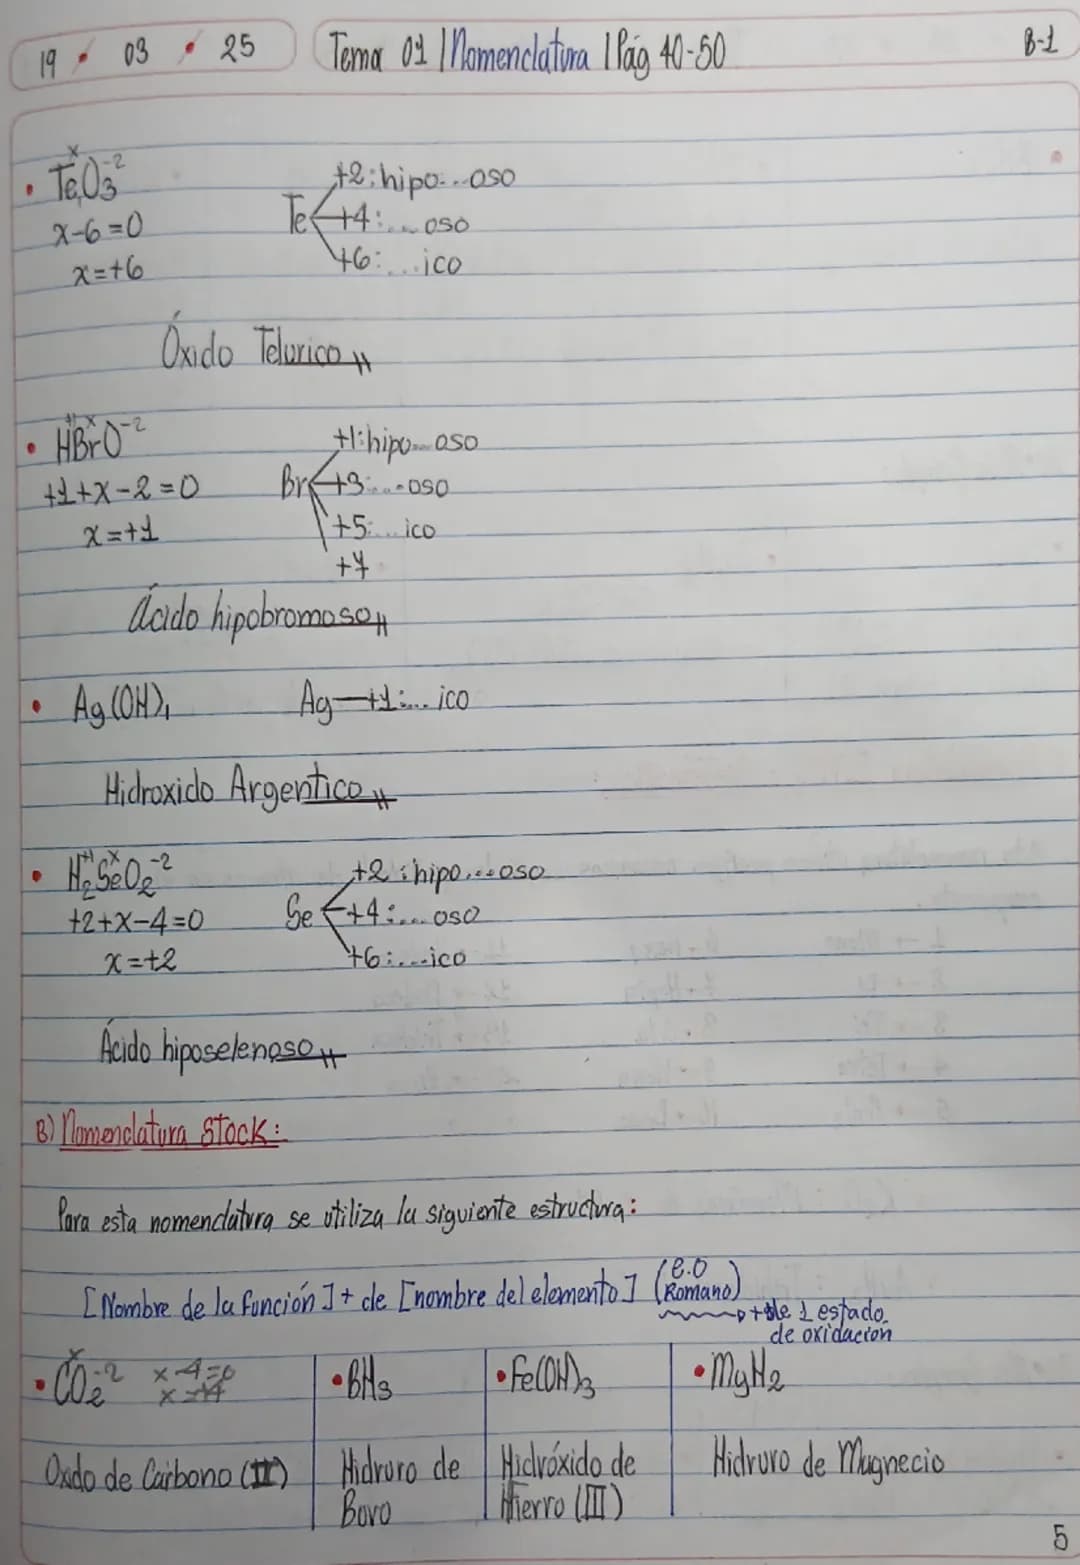 19 • 03 • 25
Tema 01 | Nomenclatura | Pág 40-50
B-1
• TeO₃⁻² x
x-6=0
x=+6
Te
+2: hipo...oso
+4: ... oso
+6: ... ico
Óxido Telurico
• HBrO⁻² +1 x
+1+x-2=0
x=+1
Br
+1: hipo... oso
+3: ... oso
+5: ... ico
+7
Ácido hipobromoso
• Ag(OH)₁
Ag — +1: ... ico
Hidroxido Argentico
• H₂SeO₂⁻² +1 x
+2+x-4=0
x=+2
Se
+2: hipo... oso
+4: ... oso
+6: ... ico
Ácido hiposelenoso
B) Nomenclatura Stock:
Para esta nomenclatura se utiliza la siguiente estructura:
[Nombre de la función] + de [nombre del elemento] (e.o Romano)
+ de 1 estado
de oxidacion
• CO₂⁻² x
x-4=0
x=+4
Oxido de Carbono
• BH₃
Hidruro de
Boro
• Fe(OH)₃
Hidróxido de
Hierro (III)
• MgH₂
Hidruro de Magnecio
5